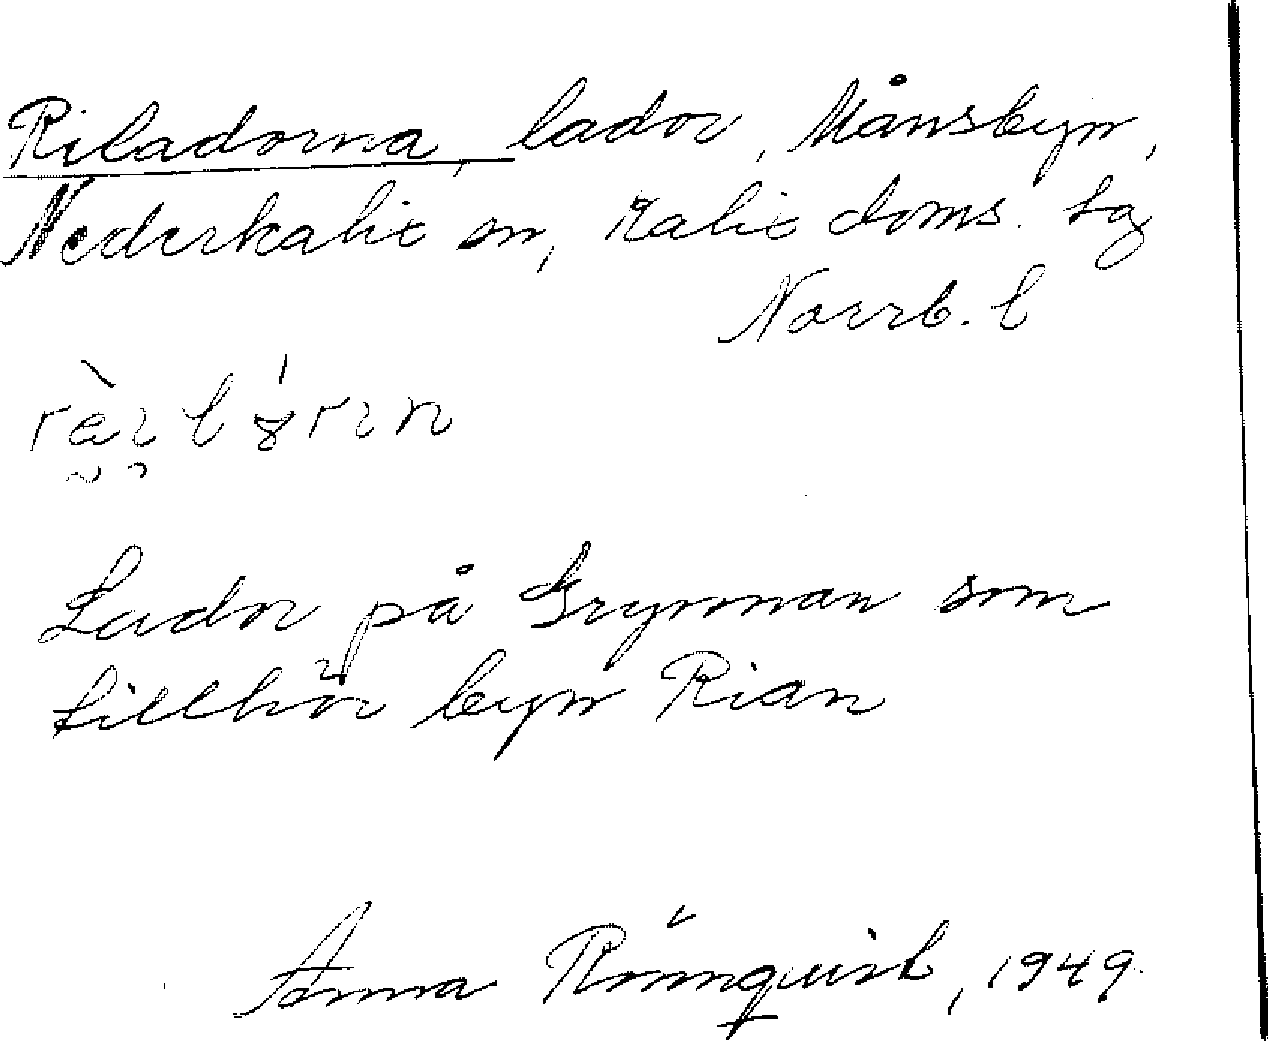 Riladorna, lador, Månsbyn,
Nederkalix sn, Kalix doms. lag
Norrb. l
Lador på Grynnan som
tillhör byn Rian
Anna Rönnquist, 1949.